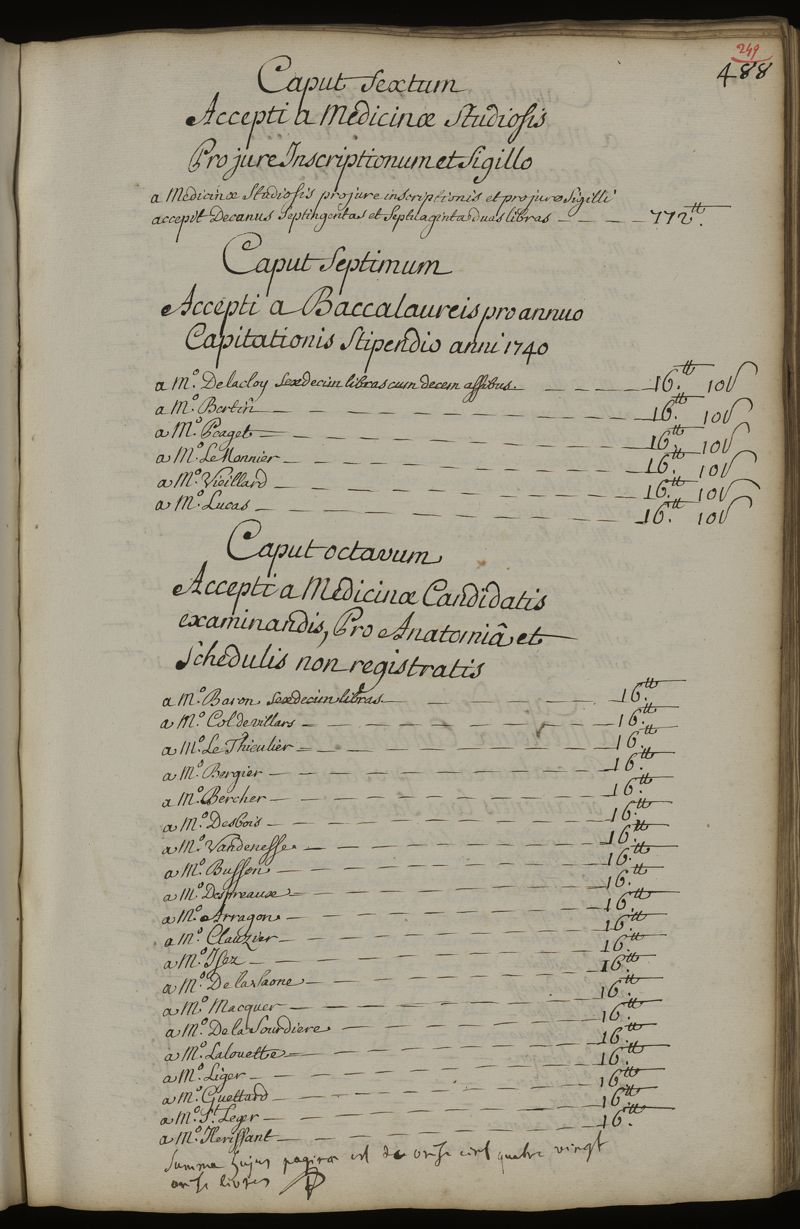 249
488
Caput Sextum
Accepti a Medicinæ Studiosis
Pro jure Inscriptionum et Sigillo
a Medicinæ Studiosis pro jure inscriptionis et pro jure Sigilli
accepit Decanus Septingentas et Septuaginta duas libras — — — — 772.tt
Caput Septimum
Accepti a Baccalaureis pro annuo
Capitationis Stipendio anni 1740
a M.o Delacloy Sexdecim libras cum decem assibus — — — — 16.tt 10s
a M.o Bertin — — — — 16.tt 10s
a M.o Peaget — — — — 16.tt 10s
a M.o Le Monnier — — — — 16.tt 10s
a M.o Vieillard — — — — 16.tt 10s
a M.o Lucas — — — — 16.tt 10s
Caput octavum
Accepti a Medicinæ Candidatis
examinandis, Pro Anatomiâ et
Schedulis non registratis
a M.o Baron Sexdecim libras — — — — 16.tt
a M.o Col de villars — — — — 16.tt
a M.o Le Thieulier — — — — 16.tt
a M.o Bergier — — — — 16.tt
a M.o Bercher — — — — 16.tt
a M.o Desbois — — — — 16.tt
a M.o Vandenesse — — — — 16.tt
a M.o Busson — — — — 16.tt
a M.o Despreaux — — — — 16.tt
a M.o Arragon — — — — 16.tt
a M.o Clauzier — — — — 16.tt
a M.o Isez — — — — 16.tt
a M.o De la Saone — — — — 16.tt
a M.o Macquer — — — — 16.tt
a M.o De la Sourdiere — — — — 16.tt
a M.o Lalouette — — — — 16.tt
a M.o Liger — — — — 16.tt
a M.o Guettard — — — — 16.tt
a M.o St. Leger — — — — 16.tt
a M.o Herissant — — — — 16.tt
Summa hujus paginæ est de onze cent quatre vingt
onze livres